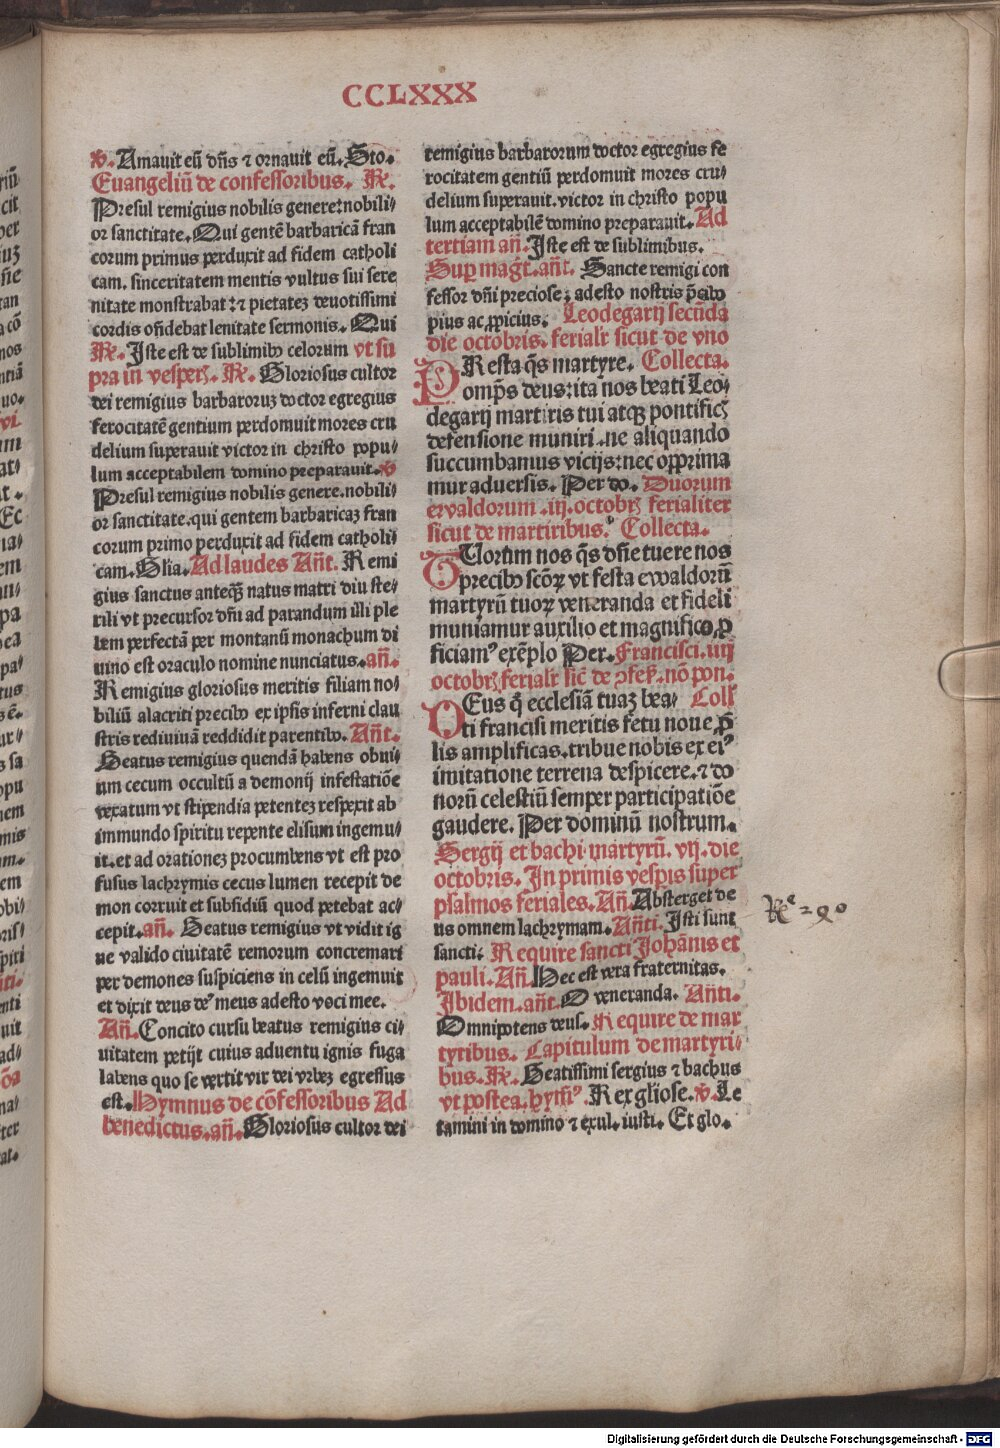 CCLXXX
℣. Amauit eū dn̄s ⁊ ornauit eū. Sto.
Euangeliū de confessoribus. ℟.
Presul remigius nobilis genere:nobili⸗
or sanctitate. Qui gentē barbaricā fran
corum primus perduxit ad fidem catholi
cam. sinceritatem mentis vultus sui sere
nitate monstrabat:⁊ pietatez deuotissimi
cordis ostẽdebat lenitate sermonis. Qui
℟. Iste est de sublimibꝫ celorum vt su
pra in vesperꝭ. ℟. Gloriosus cultor
dei remigius barbaroruz doctor egregius
ferocitatē gentium perdomuit mores cru
delium superauit victor in christo popu⸗
lum acceptabilem domino preparauit. ℣
Presul remigius nobilis genere.nobili⸗
or sanctitate.qui gentem barbaricaz fran
corum primo perduxit ad fidem catholi⸗
cam. Glia. Ad laudes Añt. Remi
gius sanctus anteqꝫ natus matri diu ste⸗
rili vt precursor dñi ad parandum illi ple
bem perfectā per montanū monachum di
uino est oraculo nomine nunciatus. añ.
Remigius gloriosus meritis filiam no⸗
biliū alacriti precibꝫ ex ipsis inferni clau
stris rediuiuā reddidit parentibꝫ. Añt.
Beatus remigius quendā habens obui⸗
um cecum occultū a demonij infestatiōe
vexatum vt stipendia petentez respexit ab
immundo spiritu repente elisum ingemu⸗
it.et ad orationez procumbens vt est pro
fusus lachrymis cecus lumen recepit de
mon corruit et subsidiū quod petebat ac⸗
cepit. añ. Beatus remigius vt vidit ig
ne valido ciuitatē remorum concremari
per demones suspiciens in celū ingemuit
et dixit deus deꝰ meus adesto voci mee.
Añ. Concito cursu beatus remigius ci⸗
uitatem petijt cuius aduentu ignis fuga
labens quo se vertit vir dei vrbez egressus
est. Hymnus de cōfessoribus Ad
benedictus. añ. Gloriosus cultor dei
remigius barbarorum doctor egregius fe
rocitatem gentiū perdomuit mores cru⸗
delium superauit.victor in christo popu
lum acceptabilē domino preparauit. Ad
tertiam añ. Iste est de sublimibus.
Suꝑ magt̄. añt. Sancte remigi con
fessor dñi preciose: adesto nostris p̄cibꝫ
pius ac ꝓpicius. Leodegarij secūda
die octobris. ferialr sicut de vno
martyre. Collecta.
PResta q̄s omp̄s deus:ita nos beati Leo⸗
degarij martiris tui atqꝫ pontificꝭ
defensione muniri.ne aliquando
succumbamus vicijs:nec opprima
mur aduersis. Per do. Duorum
ewaldorum .iij. octobrꝭ ferialiter
sicut de martiribus. Collecta.
TVorum nos q̄s dñe tuere nos
precibꝫ scōꝝ vt festa ewaldorū
martyrū tuoꝝ veneranda et fideli
muniamur auxilio et magnifico ꝓ
ficiamꝰ exēplo Per. Francisci. iiij
octobrꝭ ferialr sic̄ de ꝯfeſꝭ. nō pon.
DEus q̄ ecclesiā tuaz bea⸗ Coll̄
ti francisi meritis fetu noue ꝓ
lis amplificas.tribue nobis ex eiꝰ
imitatione terrena despicere.⁊ do
norū celestiū semper participatiōe
gaudere. Per dominū nostrum.
Sergij et bachi martyrū. vij. die
octobris. In primis vesꝑis super
psalmos feriales. Añ. Absterget de
us omnem lachrymam. Añti. Isti sunt
sancti. Require sancti Johānis et
pauli. Añ. Hec est vera fraternitas.
Ibidem. añt. O veneranda. Añti.
Omnipotens deus. Require de mar
tyribus. Capitulum de martyri⸗
bus. ℟. Beatissimi sergius ⁊ bachus
vt postea. hym̄ꝰ. Rex gliose. ℣. Le
tamini in domino ⁊ exul. iusti. Et glo.
Digitalisierung gefördert durch die Deutsche Forschungsgemeinschaft - DFG